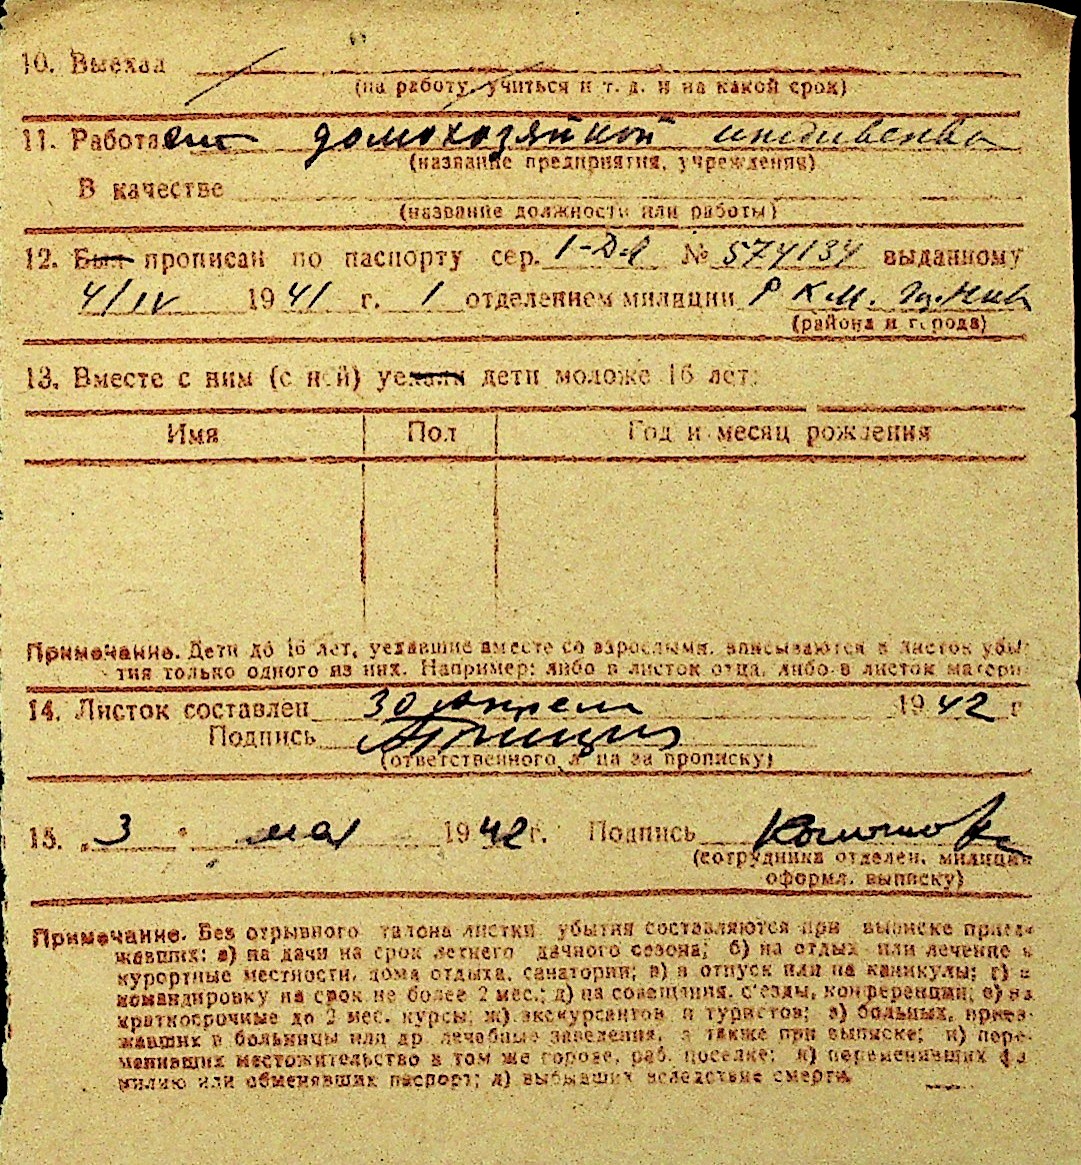 10. Выехал
(на работу, учиться и т. д. и на какой срок)
11. Работает домохозяйкой иждивенка
(название предприятия, учреждения)
В качестве
(название должности или работы)
12. Был прописан по паспорту сер. № 574134 выданному
4/IV 1941 г. 1 отделением милиции Р К М.
(района и города)
13. Вместе с ним (с ней) уехали дети моложе 16 лет:
Имя Пол Год и месяц рождения
Примечание. Дети до 16 лет, уехавшие вместе со взрослыми, вписываются в листок убы-
тия только одного из них. Например: либо в листок отца, либо в листок матери
14. Листок составлен 30 апреля 1942 г
Подпись
(ответственного лица за прописку)
15. „3" мая 1942 г. Подпись
(сотрудника отделен. милиции
оформл. выписку)
Примечание. Без отрывного талона листки убытия составляются при выписке приез-
жавших: а) на дачи на срок летнего дачного сезона; б) на отдых или лечение в
курортные местности, дома отдыха, санатории; в) в отпуск или на каникулы; г) в
командировку на срок не более 2 мес.; д) на совещания, с'езды, конференции; е) на
краткосрочные до 2 мес. курсы; ж) экскурсантов и туристов; з) больных, приез-
жавших в больницы или др лечебные заведения, а также при выписке; и) пере-
менивших местожительство в том же городе, раб. поселке; к) переменивших фа-
милию или обменявших паспорт; л) выбывших вследствие смерти.